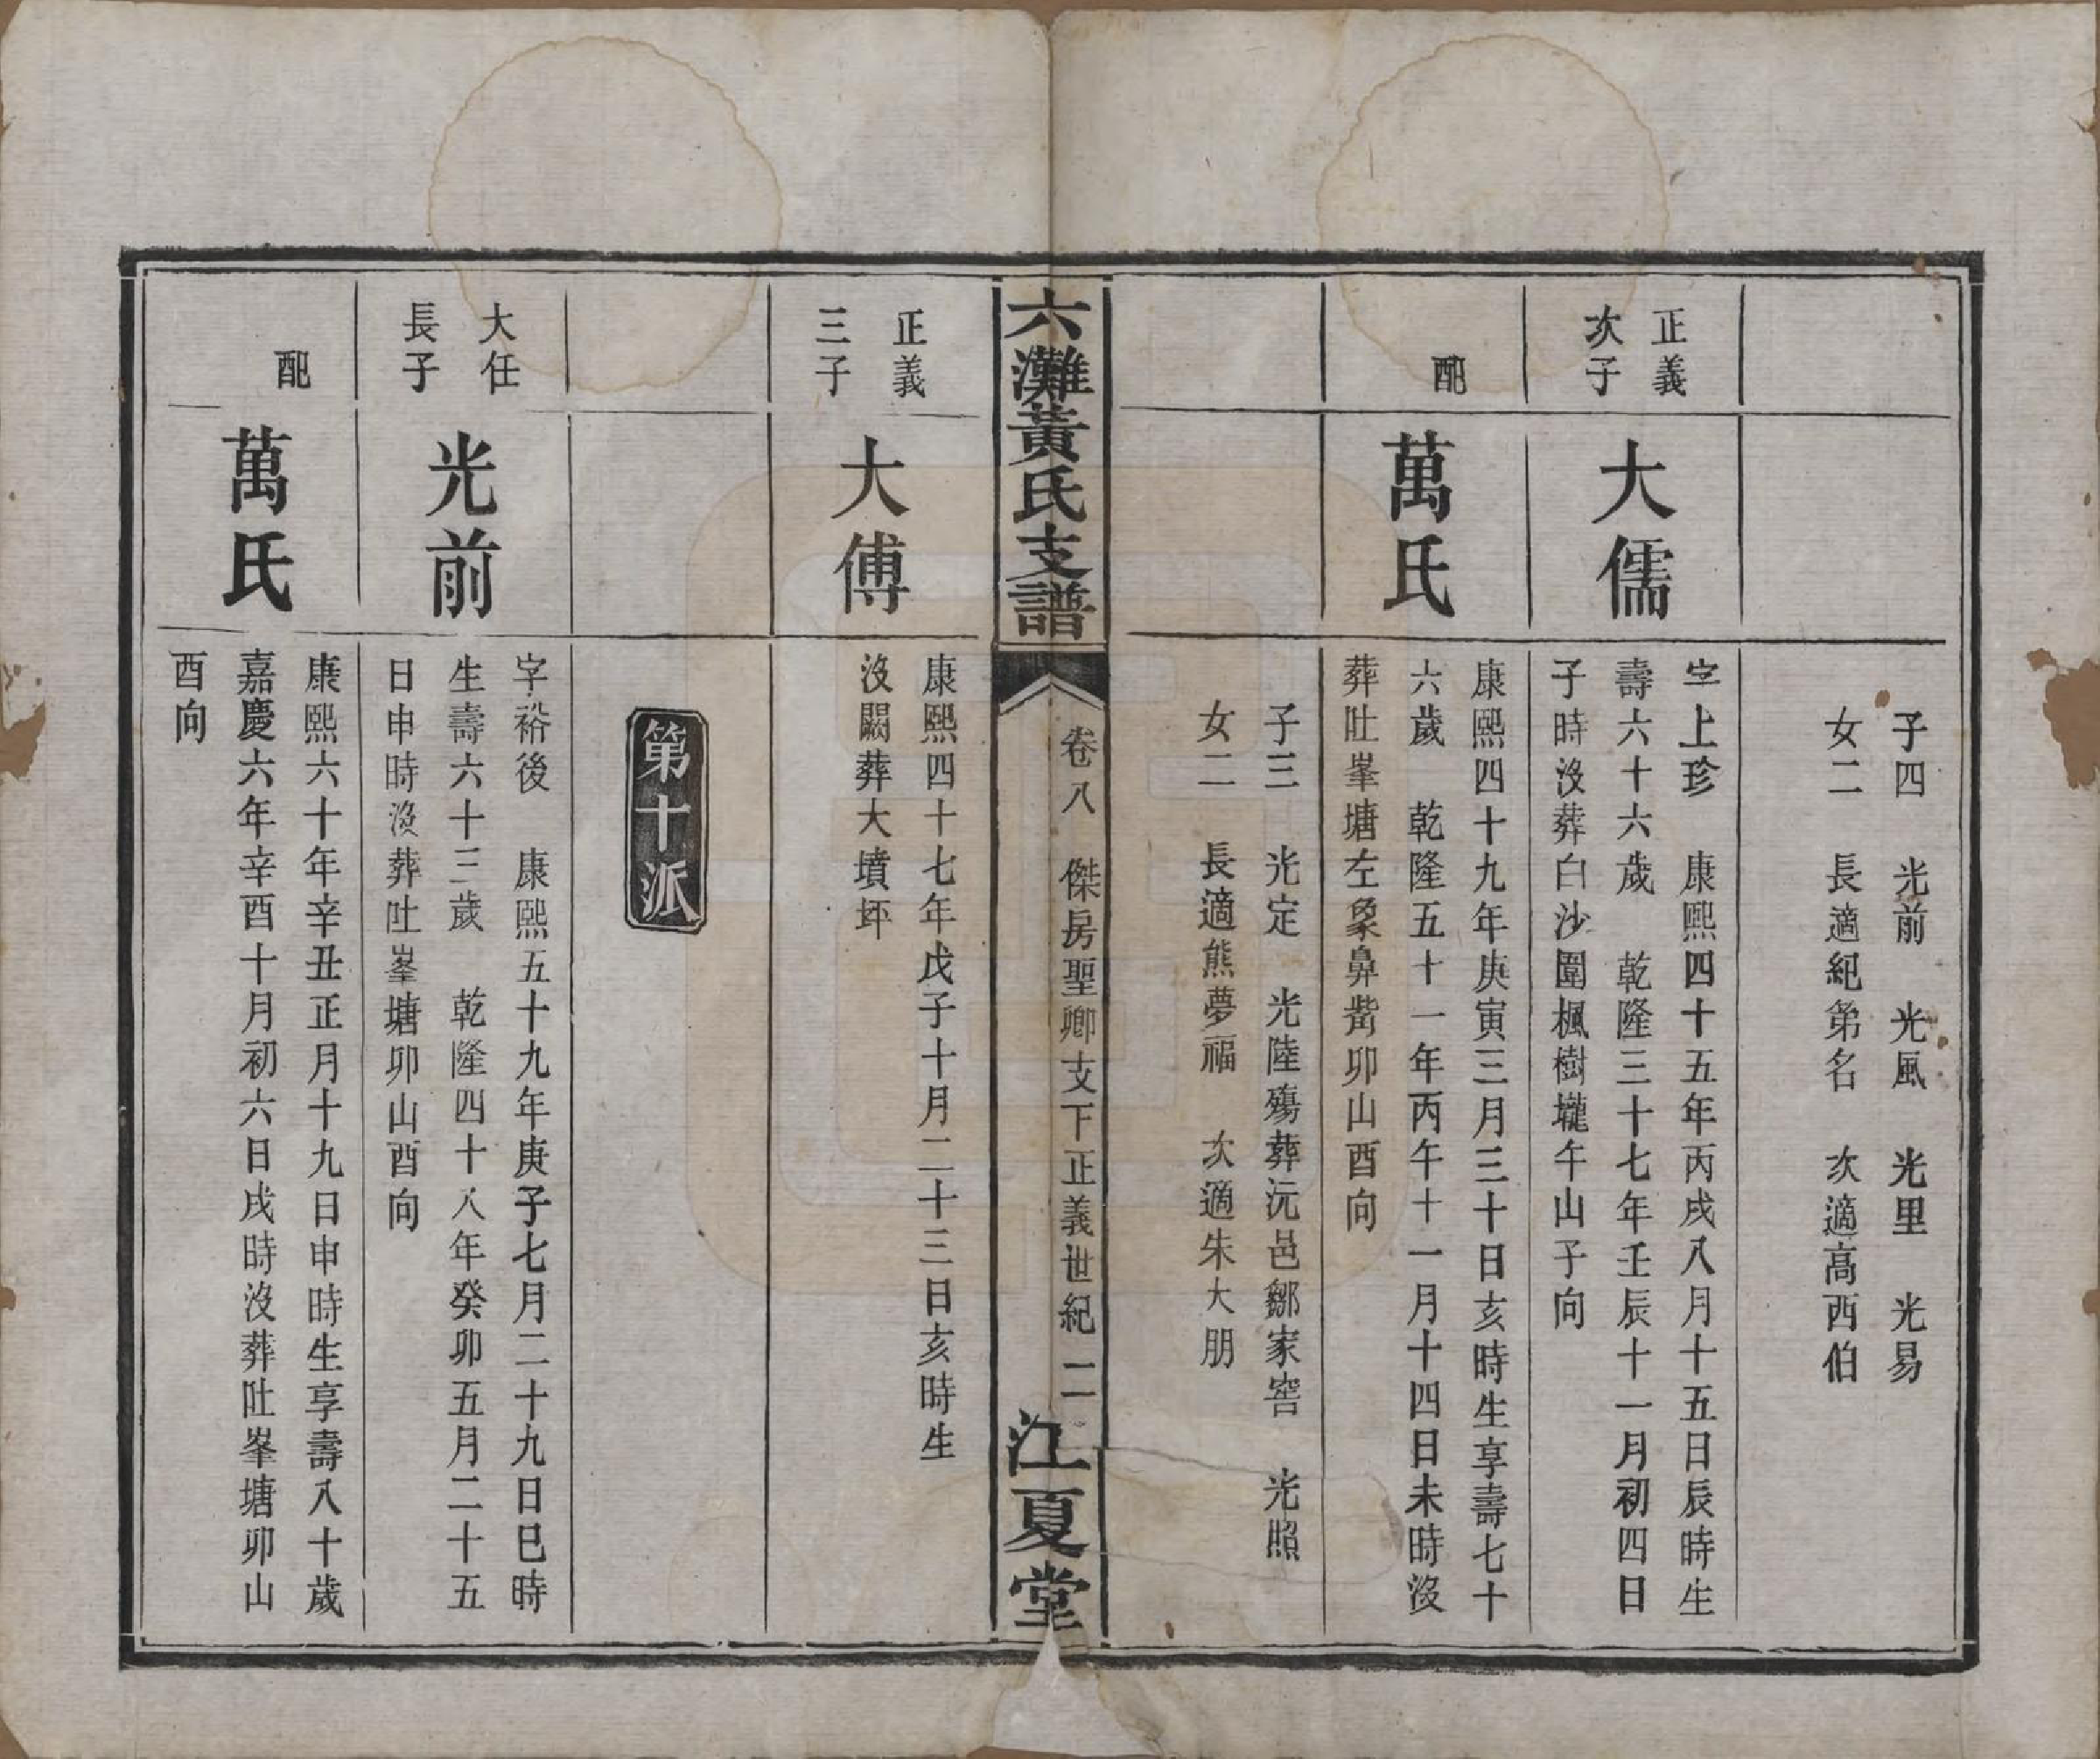 子四　光前　光風　光里　光易
女二　長適紀第名　次適高西伯
正義
次子
大儒
字上珍　康熙四十五年丙戌八月十五日辰時生
壽六十六歲　乾隆三十七年壬辰十一月初四日
子時沒葬白沙圍楓樹壠午山子向
配
萬氏
康熙四十九年庚寅三月三十日亥時生享壽七十
六歲　乾隆五十一年丙午十一月十四日未時沒
葬吐峯塘左象鼻嘴卯山酉向
子三　光定　光陸殤葬沅邑鄒家窖　光照
女二　長適熊夢福　次適朱大朋
六灘黃氏支譜
卷八　傑房聖卿支下正義世紀　二
江夏堂
正義
三子
大傅
康熙四十七年戊子十月二十三日亥時生
沒闕葬大墳坪
第十派
大任
長子
光前
字裕後　康熙五十九年庚子七月二十九日巳時
生壽六十三歲　乾隆四十八年癸卯五月二十五
日申時沒葬吐峯塘卯山酉向
配
萬氏
康熙六十年辛丑正月十九日申時生享壽八十歲
嘉慶六年辛酉十月初六日戌時沒葬吐峯塘卯山
酉向